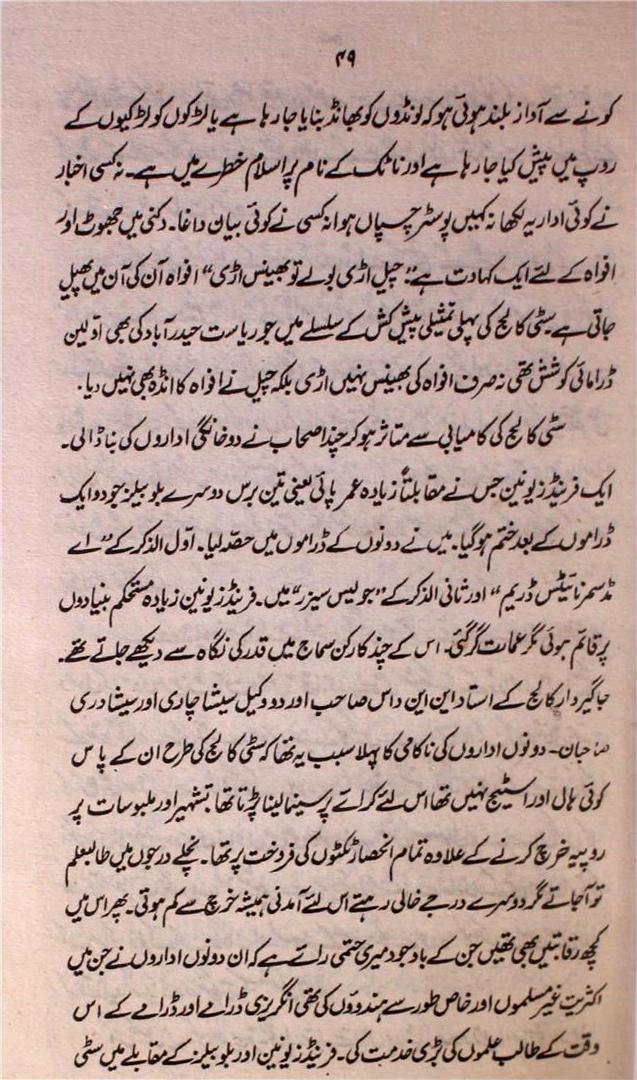 ۴۹
کونے سے آواز بلند ہوئی ہو کہ لونڈوں کو بھانڈ بنایا جا رہا ہے یا لڑکوں کو لڑکیوں کے
روپ میں پیش کیا جا رہا ہے اور ناٹک کے نام پر اسلام خطرے میں ہے۔ نہ کسی اخبار
نے کوئی اداریہ لکھا نہ کہیں پوسٹر چسپاں ہوا نہ کسی نے کوئی بیان داغا۔ دکنی میں جھوٹ اور
افواہ کے لئے ایک کہاوت ہے: "چیل اڑی بولے تو بھینس اڑی" افواہ آن کی آن میں پھیل
جاتی ہے سٹی کالج کی پہلی تمثیلی پیش کش کے سلسلے میں جو ریاست حیدرآباد کی بھی اولین
ڈرامائی کوشش تھی نہ صرف افواہ کی بھینس نہیں اڑی بلکہ چیل نے افواہ کا انڈہ بھی نہیں دیا۔
سٹی کالج کی کامیابی سے متاثر ہو کر چند اصحاب نے دو خانگی اداروں کی بنا ڈالی۔
ایک فرینڈز یونین جس نے مقابلتاً زیادہ عمر پائی یعنی تین برس دوسرے بلو بیلز جو دو ایک
ڈراموں کے بعد ختم ہو گیا۔ میں نے دونوں کے ڈراموں میں حصّہ لیا۔ اوّل الذکر کے "اے
مڈسمر نائیٹس ڈریم" اور ثانی الذکر کے "جولیس سیزر" میں۔ فرینڈز یونین زیادہ مستحکم بنیادوں
پر قائم ہوئی مگر عمارت گر گئی۔ اس کے چند کارکن سماج میں قدر کی نگاہ سے دیکھے جاتے تھے۔
جاگیردار کالج کے استاد این این داس صاحب اور دو وکیل سیشا چاری اور سیشادری
صاحبان۔ دونوں اداروں کی ناکامی کا پہلا سبب یہ تھا کہ سٹی کالج کی طرح ان کے پاس
کوئی ہال اور اسٹیج نہیں تھا اس لئے کرائے پر سینما لینا پڑتا تھا تشہیر اور ملبوسات پر
روپیہ خرچ کرنے کے علاوہ تمام انحصار ٹکٹوں کی فروخت پر تھا۔ نچلے درجوں میں طالبعلم
تو آجاتے مگر دوسرے درجے خالی رہتے اس لئے آمدنی ہمیشہ خرچ سے کم ہوتی۔ پھر اس میں
کچھ رقابتیں بھی تھیں جن کے باوجود میری حتمی رائے ہے کہ ان دونوں اداروں نے جن میں
اکثریت غیر مسلموں اور خاص طور سے ہندوؤں کی تھی انگریزی ڈرامے اور ڈرامے کے اس
وقت کے طالب علموں کی بڑی خدمت کی۔ فرینڈز یونین اور بلو بیلز کے مقابلے میں سٹی